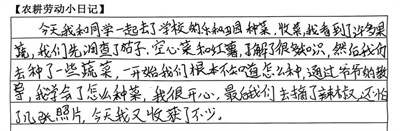 【农耕劳动小日记】
今天我和同学一起去了学校的乐和田园种菜,收菜,我看到了许多果
蔬,我们先调查了茄子、空心菜和红薯,了解了很多知识,然后我们
去种了一些蔬菜,一开始我们根本不知道怎么种,通过爷爷的教
导,我学会了怎么种菜,我很开心,最后我们去摘了辣椒还拍
了几张照片,今天我又收获了不少。